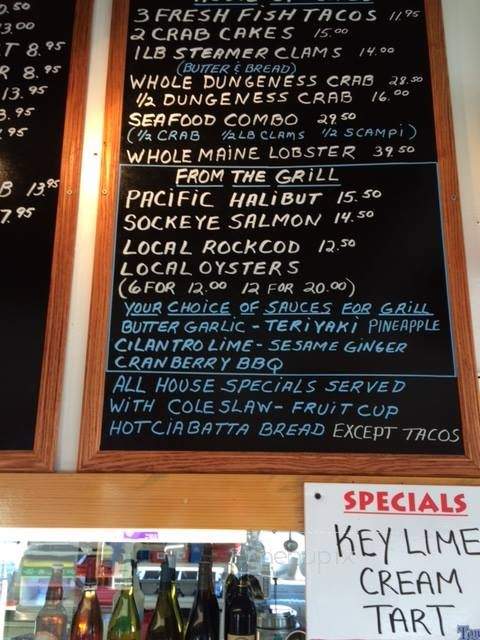 3 FRESH FISH TACOS 11.95
2 CRAB CAKES 15.00
1LB STEAMER CLAMS 14.00
(BUTTER & BREAD)
WHOLE DUNGENESS CRAB 28.50
1/2 DUNGENESS CRAB 16.00
SEAFOOD COMBO 29.50
(1/2 CRAB 1/2LB CLAMS 1/2 SCAMPI)
WHOLE MAINE LOBSTER 39.50
FROM THE GRILL
PACIFIC HALIBUT 15.50
SOCKEYE SALMON 14.50
LOCAL ROCKCOD 12.50
LOCAL OYSTERS
(6 FOR 12.00 12 FOR 20.00)
YOUR CHOICE OF SAUCES FOR GRILL
BUTTER GARLIC - TERIYAKI PINEAPPLE
CILANTRO LIME - SESAME GINGER
CRANBERRY BBQ
ALL HOUSE SPECIALS SERVED
WITH COLESLAW - FRUIT CUP
HOT CIABATTA BREAD EXCEPT TACOS
.50
3.00
T 8.95
R 8.95
13.95
.95
.95
B 13.95
7.95
SPECIALS
KEY LIME
CREAM
TART